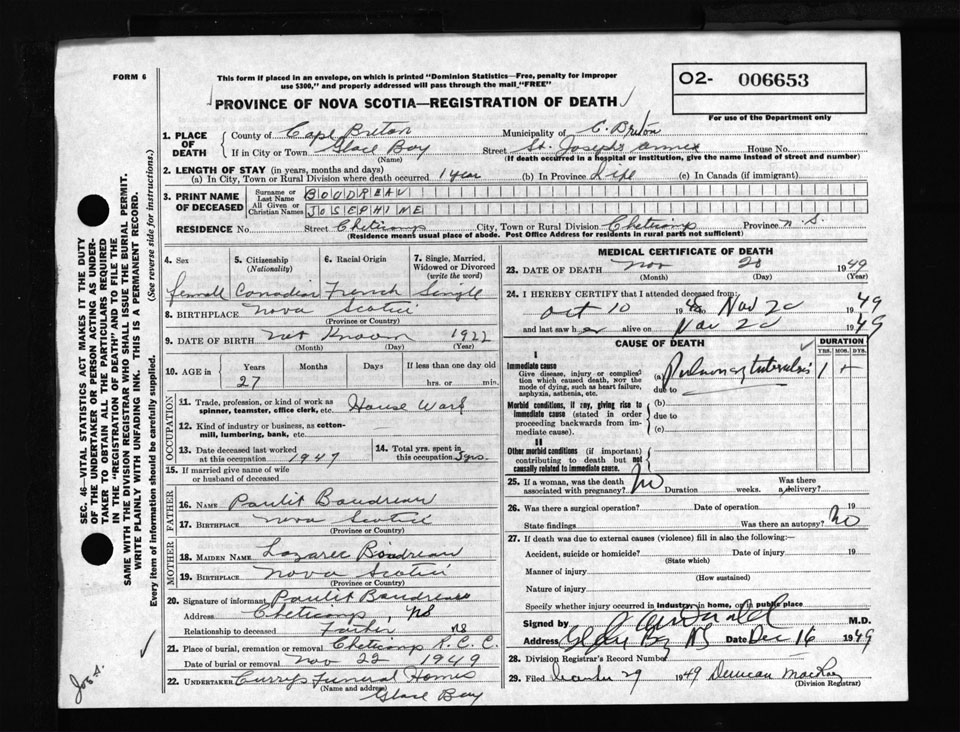 FORM 6
This form if placed in an envelope, on which is printed "Dominion Statistics—Free, penalty for improper
use $300," and properly addressed will pass through the mail "FREE"
O2- 006653
For use of the Department only
PROVINCE OF NOVA SCOTIA—REGISTRATION OF DEATH
1. PLACE OF DEATH
County of Cape Breton Municipality of C. Breton
If in City or Town Glace Bay Street St. Josephs annex House No.
(Name) (If death occurred in a hospital or institution, give the name instead of street and number)
2. LENGTH OF STAY (in years, months and days)
(a) In City, Town or Rural Division where death occurred 1 year (b) In Province Life (c) In Canada (if immigrant)
3. PRINT NAME OF DECEASED
Surname or Last Name BOUDREAU
All Given or Christian Names JOSEPHIME
RESIDENCE No. Street Cheticamp City, Town or Rural Division Cheticamp Province N S.
(Residence means usual place of abode. Post Office Address for residents in rural parts not sufficient)
4. Sex 5. Citizenship (Nationality) 6. Racial Origin 7. Single, Married, Widowed or Divorced (write the word)
female Canadian French Single
8. BIRTHPLACE Nova Scotia
(Province or Country)
9. DATE OF BIRTH Not Known 1922
(Month) (Day) (Year)
10. AGE in Years Months Days If less than one day old
27 hrs. or min.
OCCUPATION
11. Trade, profession, or kind of work as spinner, teamster, office clerk, etc. House Work
12. Kind of industry or business, as cotton-mill, lumbering, bank, etc.
13. Date deceased last worked at this occupation 1947 14. Total yrs. spent in this occupation 3 yrs.
15. If married give name of wife or husband of deceased
FATHER
16. Name Paulit Boudreau
17. Birthplace Nova Scotia
(Province or Country)
MOTHER
18. Maiden Name Boudreau
19. Birthplace Nova Scotia
(Province or Country)
20. Signature of informant Paulit Boudreau
Address Cheticamp, NS
Relationship to deceased Father NS
21. Place of burial, cremation or removal Cheticamp R.C.C.
Date of burial or removal Nov 22 1949
22. UNDERTAKER Currys Funeral Homes
(Name and address) Glace Bay
MEDICAL CERTIFICATE OF DEATH
23. DATE OF DEATH Nov 20 1949
(Month) (Day) (Year)
24. I HEREBY CERTIFY that I attended deceased from:
Oct 10 194 to Nov 20 1949
and last saw her alive on Nov 20 1949
CAUSE OF DEATH DURATION
YRS. MOS. DYS.
I
Immediate cause
Give disease, injury or complication which caused death, NOT the mode of dying, such as heart failure, asphyxia, asthenia, etc.
(a) Pulmonary tuberculosis 1 +
due to
Morbid conditions, if any, giving rise to immediate cause (stated in order proceeding backwards from immediate cause).
(b)
due to
(c)
II
Other morbid conditions (if important) contributing to death but not causally related to immediate cause.
25. If a woman, was the death associated with pregnancy? No Duration weeks. Was there a delivery?
26. Was there a surgical operation? Date of operation 19
State findings Was there an autopsy? No
27. If death was due to external causes (violence) fill in also the following:—
Accident, suicide or homicide? Date of injury 19
(State which)
Manner of injury
(How sustained)
Nature of injury
Specify whether injury occurred in industry, in home, or in public place
Signed by M.D.
Address Glace Bay NS Date Dec 16 1949
28. Division Registrar's Record Number
29. Filed December 29 1949 Duncan MacKay
(Division Registrar)
SEC. 46—VITAL STATISTICS ACT MAKES IT THE DUTY
OF THE UNDERTAKER OR PERSON ACTING AS UNDER-
TAKER TO OBTAIN ALL THE PARTICULARS REQUIRED
IN THE "REGISTRATION OF DEATH" AND TO FILE THE
SAME WITH THE DIVISION REGISTRAR WHO SHALL ISSUE THE BURIAL PERMIT.
WRITE PLAINLY WITH UNFADING INK. THIS IS A PERMANENT RECORD.
Every item of information should be carefully supplied. (See reverse side for instructions.)